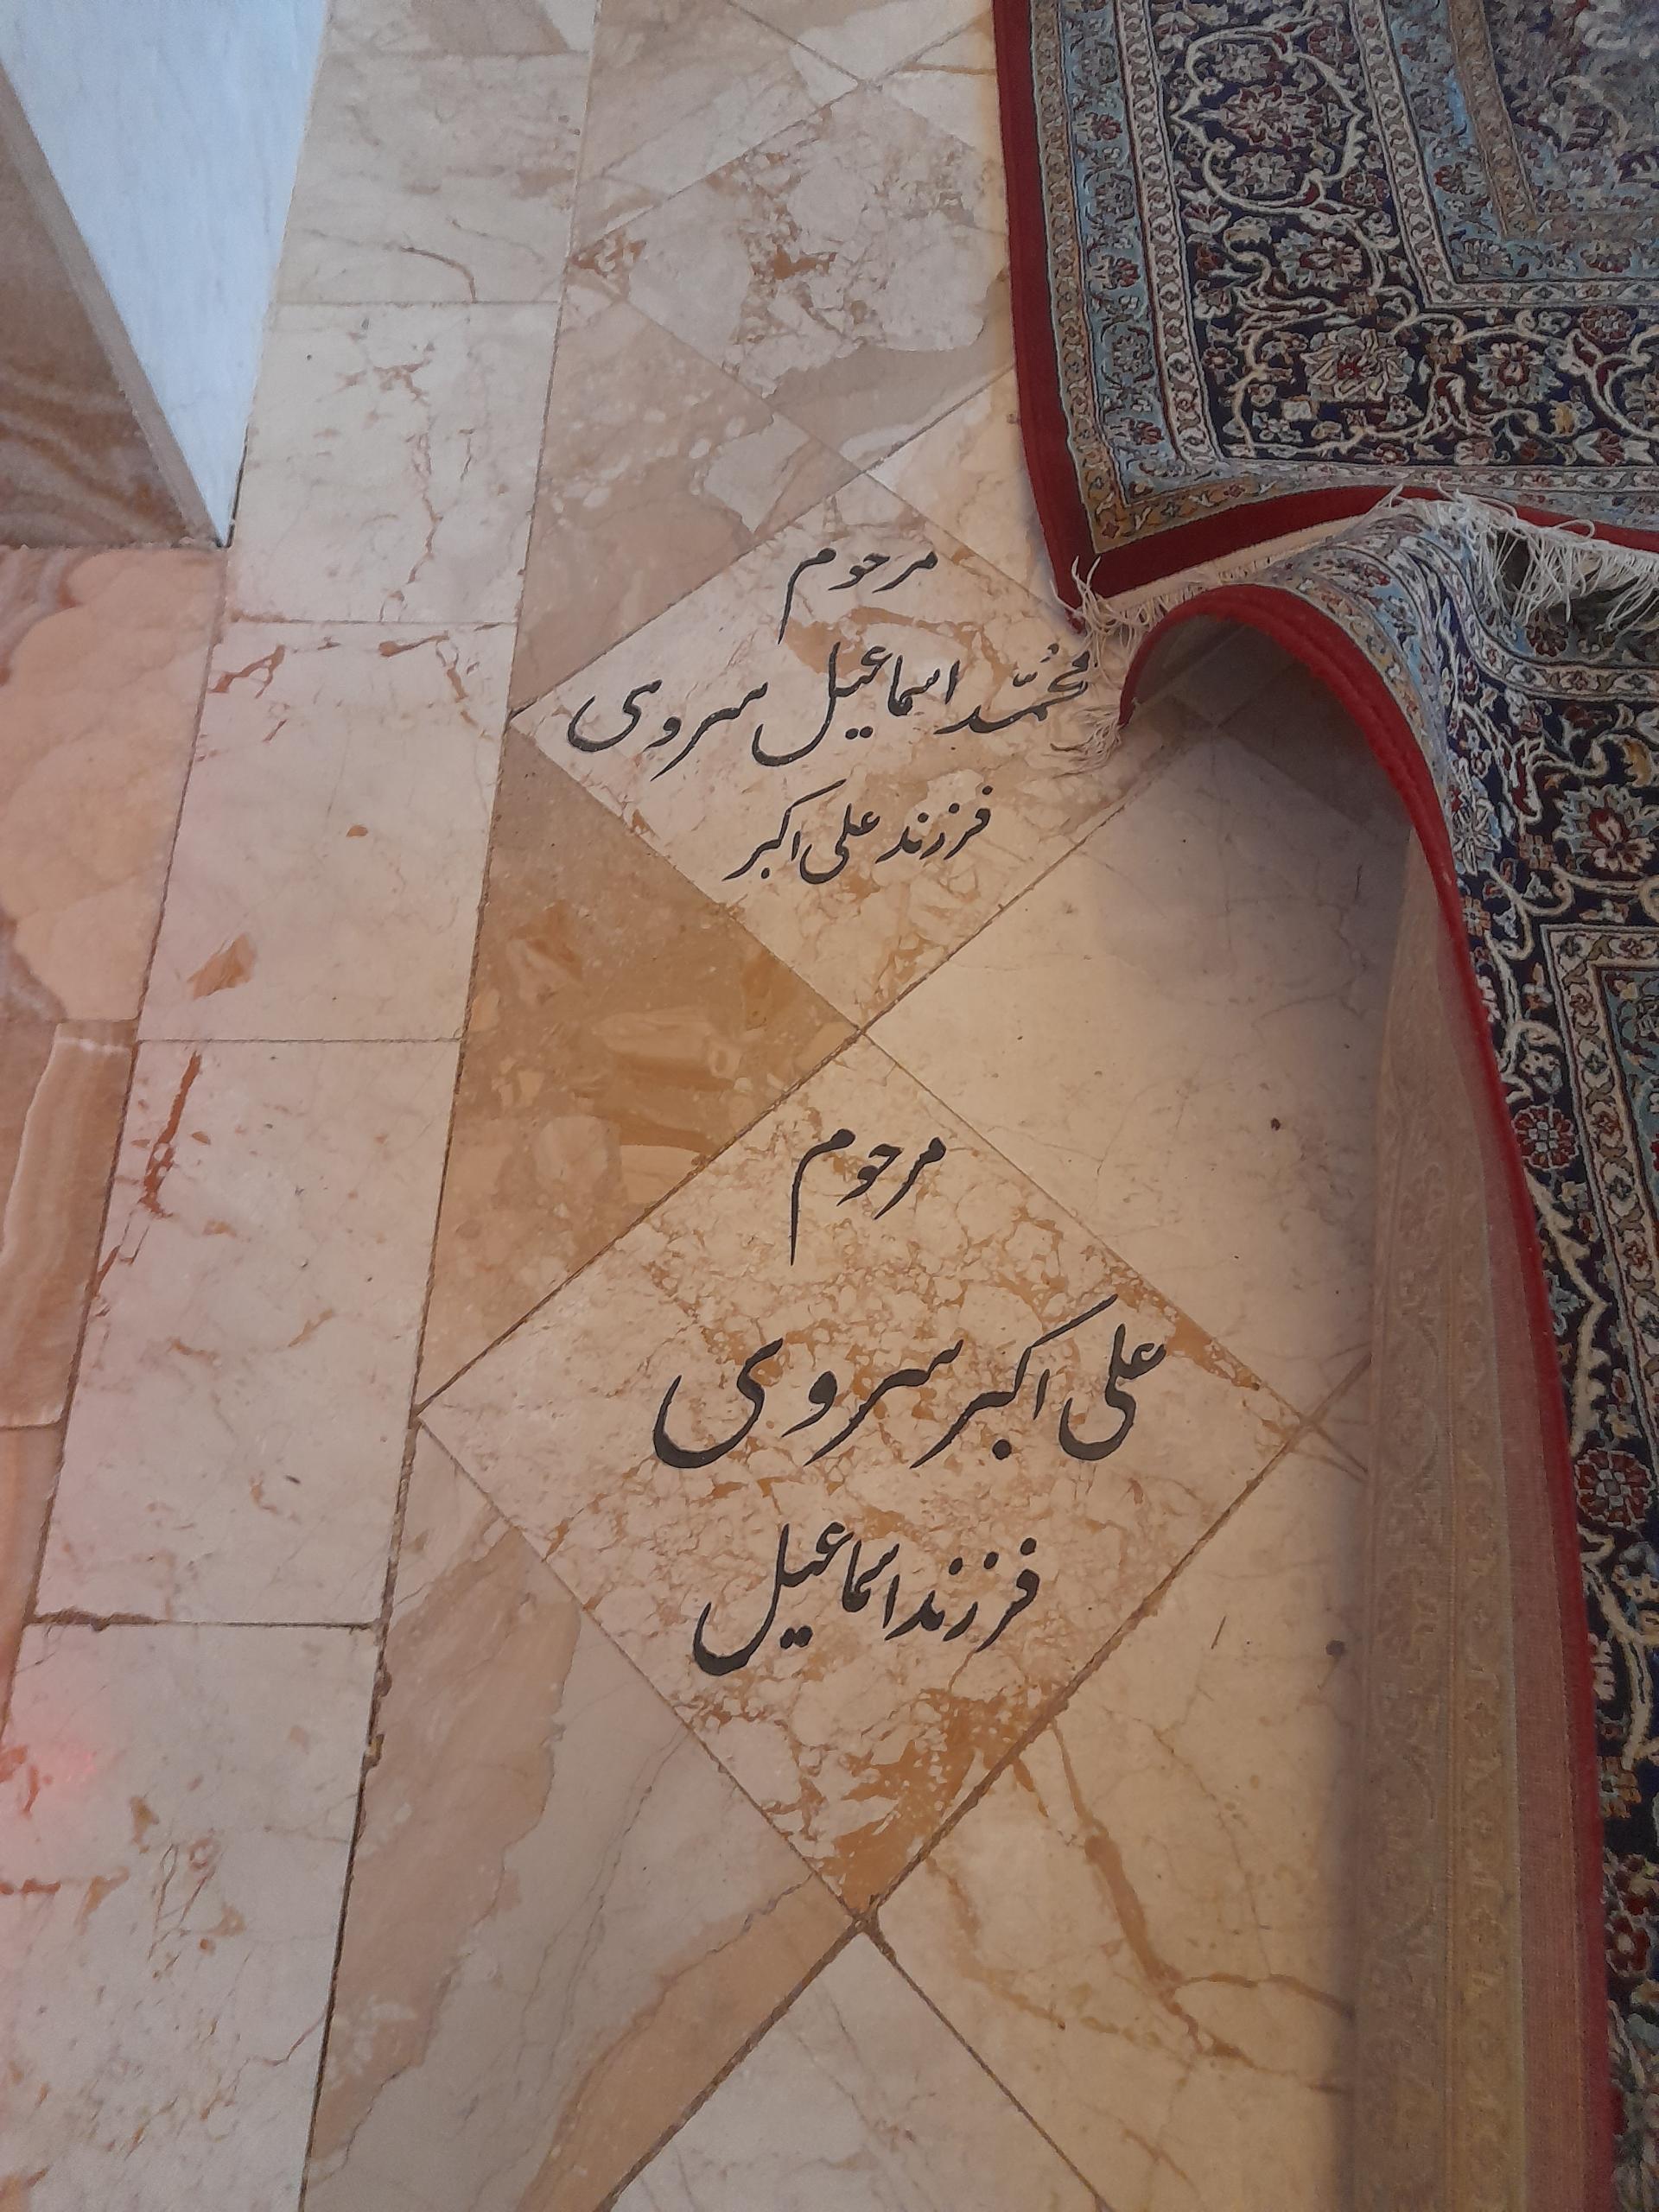 مرحوم
محمّد اسماعیل سروی
فرزند علی اکبر
مرحوم
علی اکبر سروی
فرزند اسماعیل